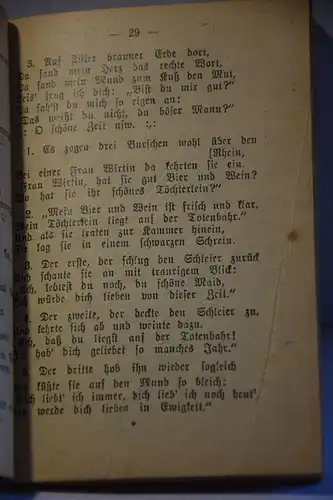 — 29 —
3. Auf stiller brauner Erde dort,
Da fand mein Herz das rechte Wort,
Da fand mein Mund zum Kuß den Mut,
Leis' frug ich dich: „Bist du mir gut?"
Da sah'st du mich so eigen an:
„Das weißt du nicht, du böser Mann?"
:,: O schöne Zeit usw. :,:
1. Es zogen drei Burschen wohl über den
Rhein,
Bei einer Frau Wirtin da kehrten sie ein.
„Frau Wirtin, hat sie gut Bier und Wein?
Wo hat sie ihr schönes Töchterlein?"
2. „Mein Bier und Wein ist frisch und klar,
Mein Töchterlein liegt auf der Totenbahr."
Und als sie traten zur Kammer hinein,
Sie lag sie in einem schwarzen Schrein.
3. Der erste, der schlug den Schleier zurück
Und schaute sie an mit traurigem Blick:
„Ach, lebtest du noch, du schöne Maid,
Ich würde dich lieben von dieser Zeit."
4. Der zweite, der deckte den Schleier zu,
Und kehrte sich ab und weinte dazu.
„Ach, daß du liegst auf der Totenbahr!
Ich hab' dich geliebet so manches Jahr."
5. Der dritte hob ihn wieder sogleich
Und küßte sie auf den Mund so bleich:
„Dich liebt' ich immer, dich lieb' ich noch heut'
Und werde dich lieben in Ewigkeit."